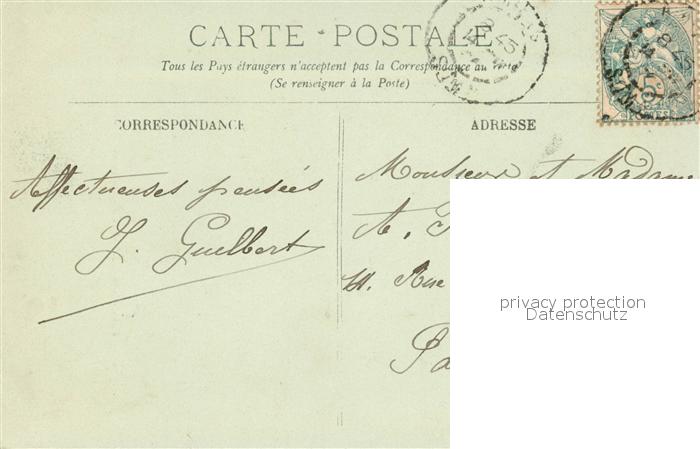 CARTE POSTALE
Tous les Pays étrangers n'acceptent pas la Correspondance au verso
(Se renseigner à la Poste)
CORRESPONDANCE
ADRESSE
Affectueuses pensées
J. Guelbert
Monsieur et Madame
A.
Rue
privacy protection
Datenschutz